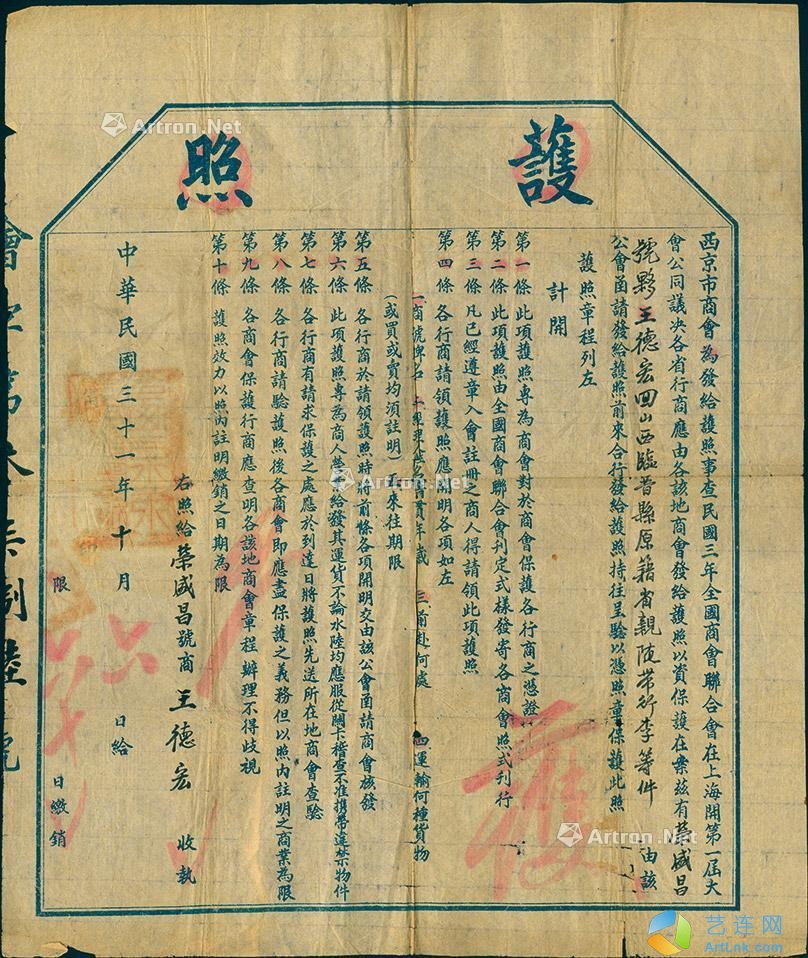 護照
西京市商會為發給護照事查民國三年全國商會聯合會在上海開第一屆大
會公同議决各省行商應由各該地商會發給護照以資保護在案茲有榮盛昌
號夥王德宏回山西臨晉縣原籍省親随帶行李等件由該
公會函請發給護照前來合行發給護照持往呈驗以憑照章保護此照
護照章程列左
計開
第一條 此項護照專為商會對於商會保護各行商之憑證
第二條 此項護照由全國商會聯合會刊定式樣發寄各商會照式刊行
第三條 凡已經遵章入會註冊之商人得請領此項護照
第四條 各行商請領護照應開明各項如左
一商號牌名 年歲 三前赴何處 四運輸何種貨物
(或買或賣均須註明) 五來往期限
第五條 各行商於請領護照時將前條各項開明交由該公會函請商會核發
第六條 此項護照專為商人營業給發其運貨不論水陸均應服從關卡稽查不准携帶違禁物件
第七條 各行商有請求保護之處應於到達日將護照先送所在地商會查驗
第八條 各行商請驗護照後各商會即應盡保護之義務但以照內註明之商業為限
第九條 各商會保護行商應查明各該地商會章程辦理不得歧視
第十條 護照效力以照內註明繳銷之日期為限
右照給榮盛昌號商王德宏 收執
中華民國三十一年十月 日給
限 日繳銷
會字第 捌陸號
護
Artron.Net
Artron.Net
Artron.Net
Artron.Net
艺连网
ArtLnk.com